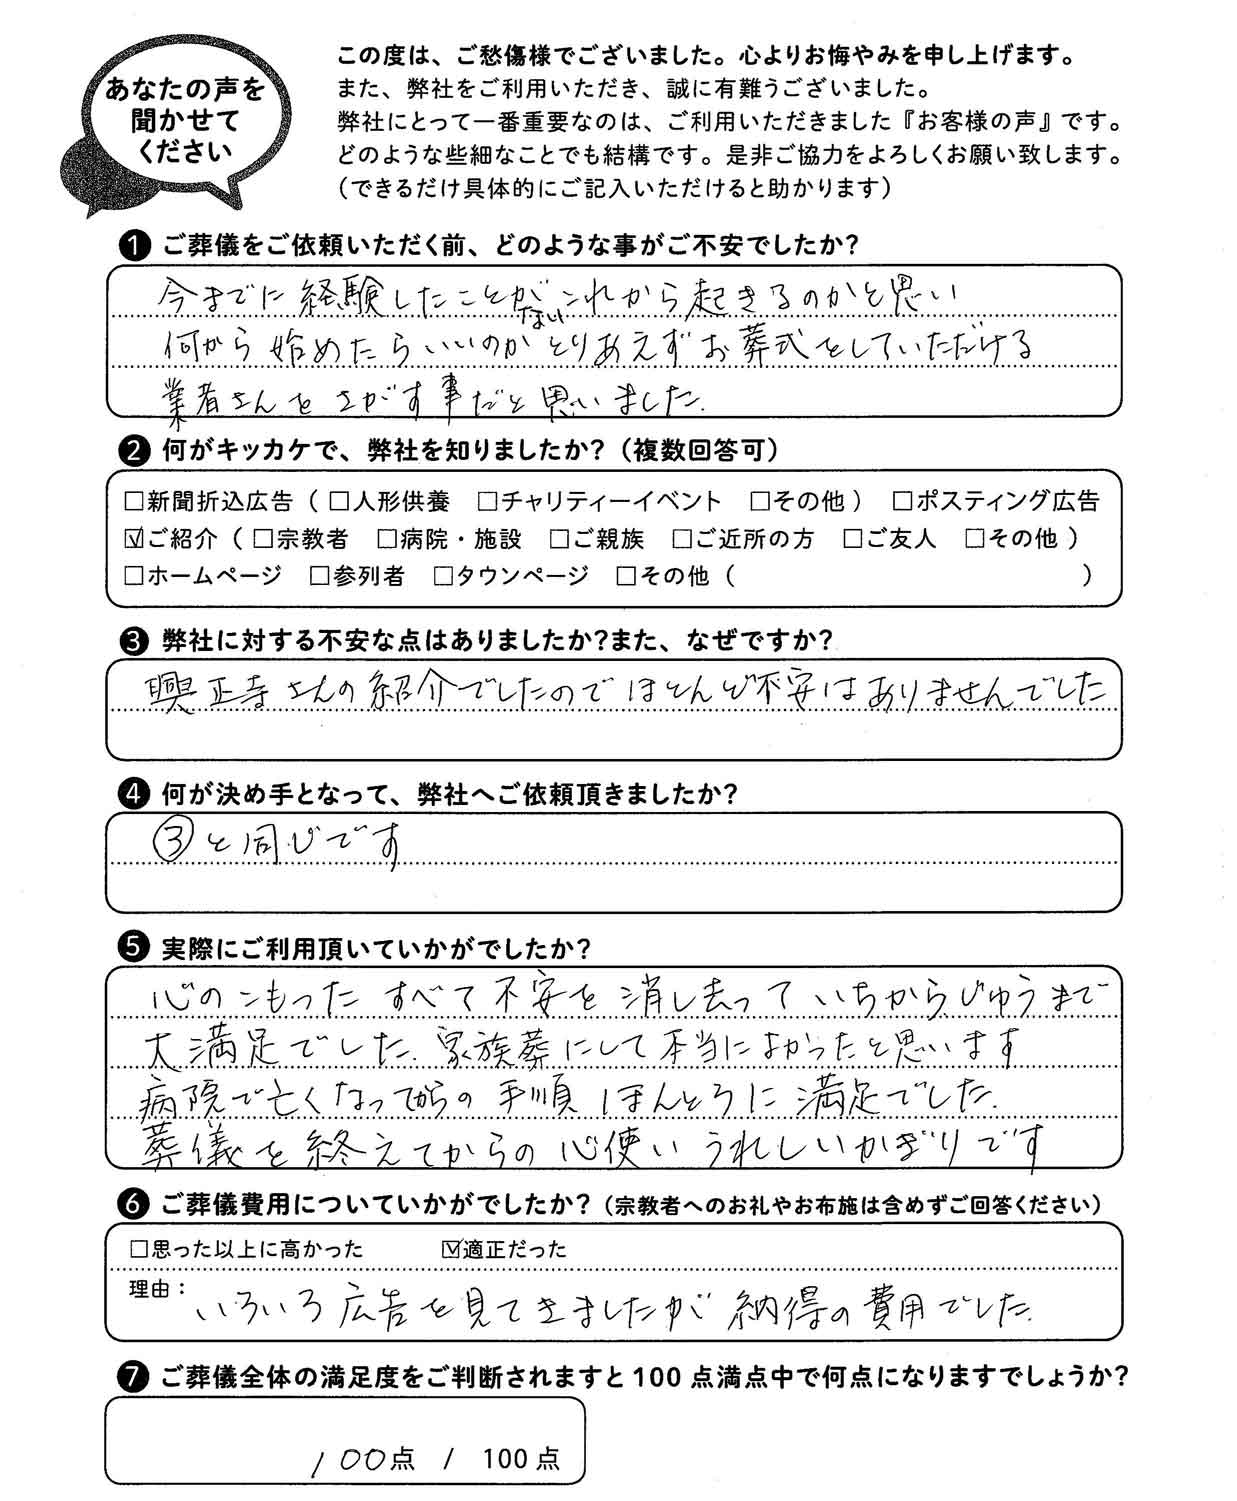 あなたの声を
聞かせて
ください
この度は、ご愁傷様でございました。心よりお悔やみを申し上げます。
また、弊社をご利用いただき、誠に有難うございました。
弊社にとって一番重要なのは、ご利用いただきました『お客様の声』です。
どのような些細なことでも結構です。是非ご協力をよろしくお願い致します。
（できるだけ具体的にご記入いただけると助かります）
❶ ご葬儀をご依頼いただく前、どのような事がご不安でしたか？
今までに経験したことがないこれから起きるのかと思い
何から始めたらいいのかとりあえずお葬式をしていただける
業者さんをさがす事だと思いました.
❷ 何がキッカケで、弊社を知りましたか？（複数回答可）
□新聞折込広告（□人形供養 □チャリティーイベント □その他） □ポスティング広告
☑ご紹介（□宗教者 □病院・施設 □ご親族 □ご近所の方 □ご友人 □その他）
□ホームページ □参列者 □タウンページ □その他（ ）
❸ 弊社に対する不安な点はありましたか？また、なぜですか？
興正寺さんの紹介でしたのでほとんど不安はありませんでした
❹ 何が決め手となって、弊社へご依頼頂きましたか？
③と同じです
❺ 実際にご利用頂いていかがでしたか？
心のこもったすべて不安を消し去っていちからじゅうまで
大満足でした.家族葬にして本当によかったと思います
病院で亡くなってからの手順ほんとうに満足でした.
葬儀を終えてからの心使いうれしいかぎりです
❻ ご葬儀費用についていかがでしたか？（宗教者へのお礼やお布施は含めずご回答ください）
□思った以上に高かった ☑適正だった
理由：いろいろ広告を見てきましたが納得の費用でした.
❼ ご葬儀全体の満足度をご判断されますと100点満点中で何点になりますでしょうか？
100点 / 100点